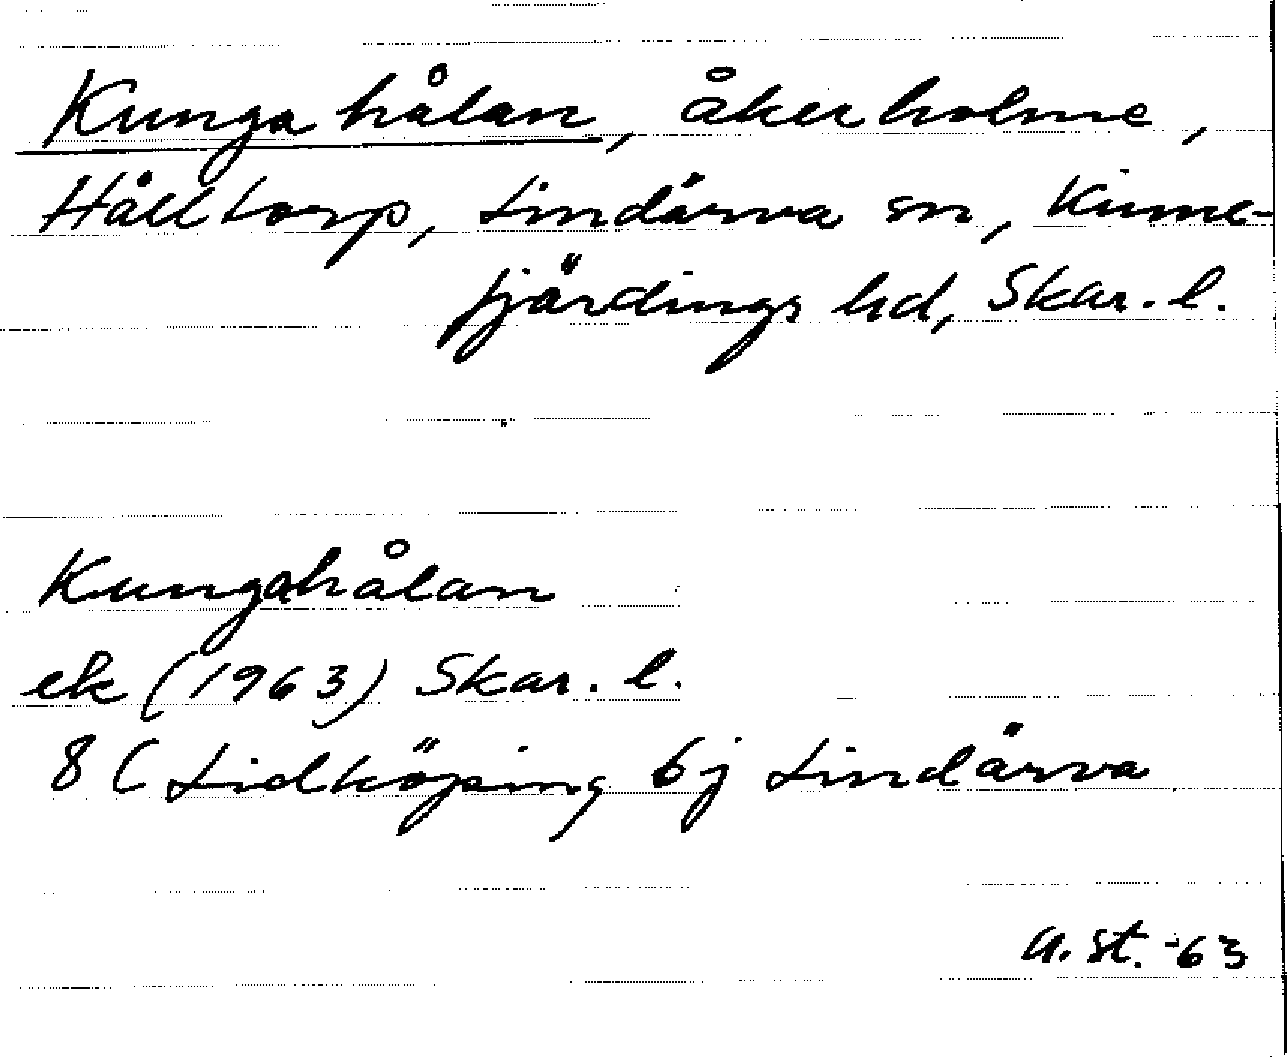 Kungahålan, åkerholme,
Hälltorp, Lindärva sn, Kinne-
fjärdings hd, Skar. l.
Kungahålan
ek (1963) Skar. l.
8 C Lidköping 6 j Lindärva
a. st. -63